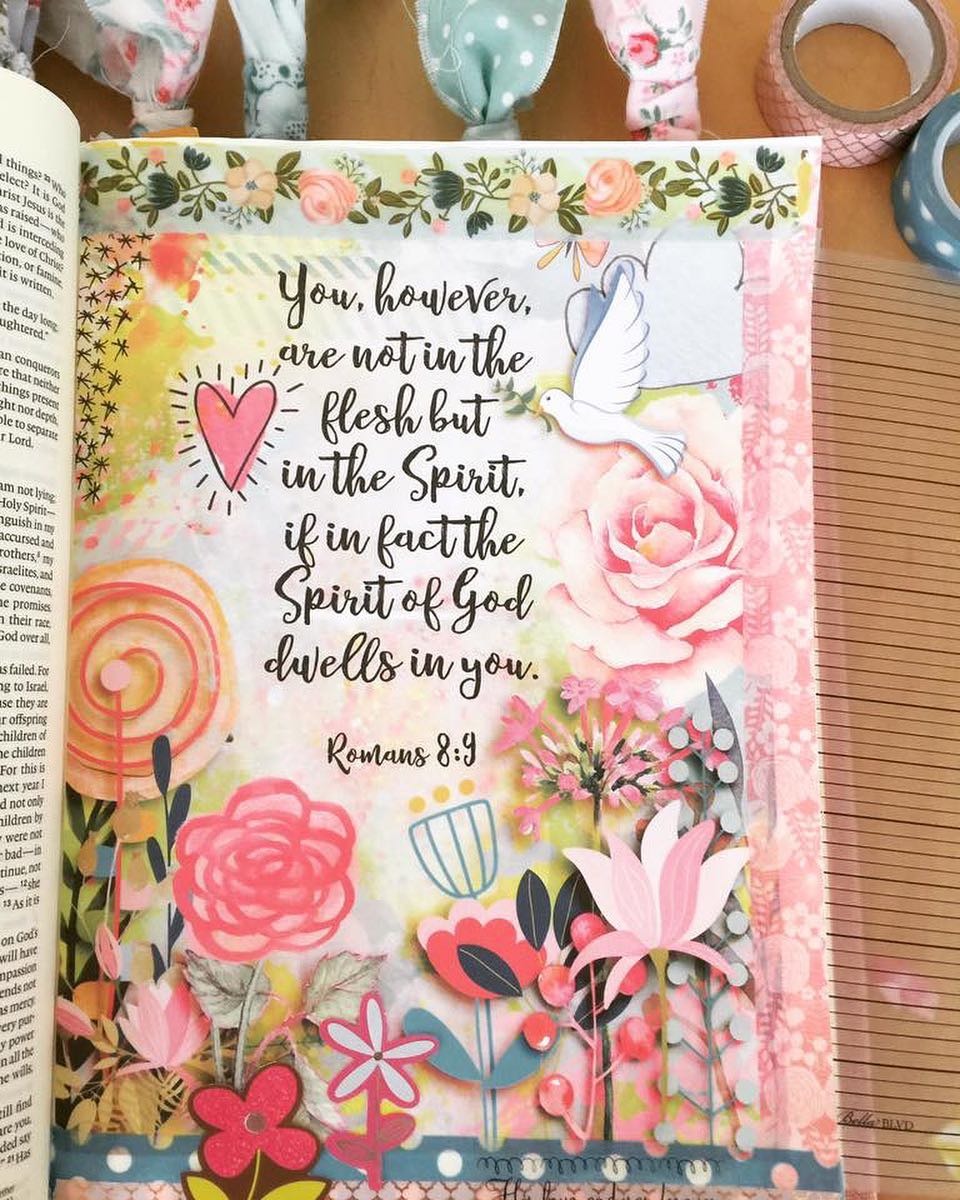 things? 33 Who
elect? It is God
Christ Jesus is the
was raised—who
d is interceding
e love of Christ?
tion, or famine,
it is written,
the day long;
ughtered."
an conquerors
re that neither
things present
ght nor depth,
ble to separate
r Lord.
am not lying;
Holy Spirit—
nguish in my
accursed and
rothers, my
sraelites, and
e covenants,
he promises.
n their race,
God over all,
as failed. For
ng to Israel,
use they are
r offspring
children of
he children
For this is
next year I
d not only
children by
y were not
r bad—in
tinue, not
s— 12 she
13 As it is
on God's
will have
mpassion
ends not
as mercy
very pur-
y power
n all the
he wills.
till find
are you,
ded say
21 Has
You, however,
are not in the
flesh but
in the Spirit,
if in fact the
Spirit of God
dwells in you.
Romans 8:9
Bella BLVD